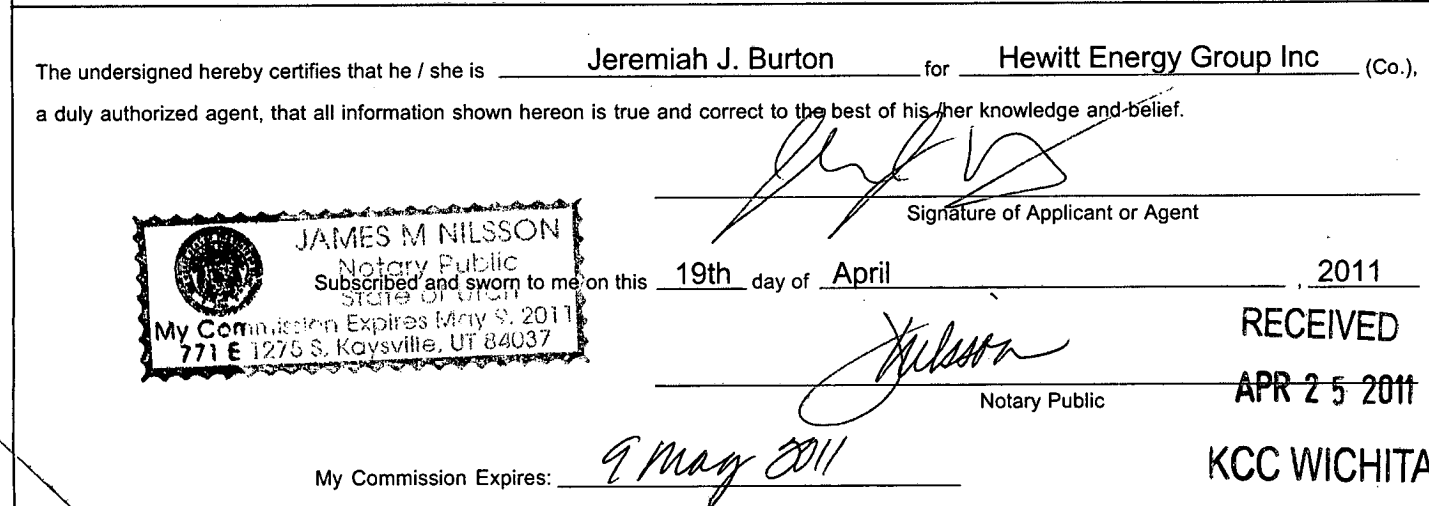 The undersigned hereby certifies that he / she is Jeremiah J. Burton for Hewitt Energy Group Inc (Co.),
a duly authorized agent, that all information shown hereon is true and correct to the best of his /her knowledge and belief.
Signature of Applicant or Agent
JAMES M NILSSON
Notary Public
State of Utah
My Commission Expires May 9, 2011
771 E 1275 S, Kaysville, UT 84037
Subscribed and sworn to me on this 19th day of April , 2011
RECEIVED
Nilsson
Notary Public
APR 25 2011
My Commission Expires: 9 May 2011
KCC WICHITA